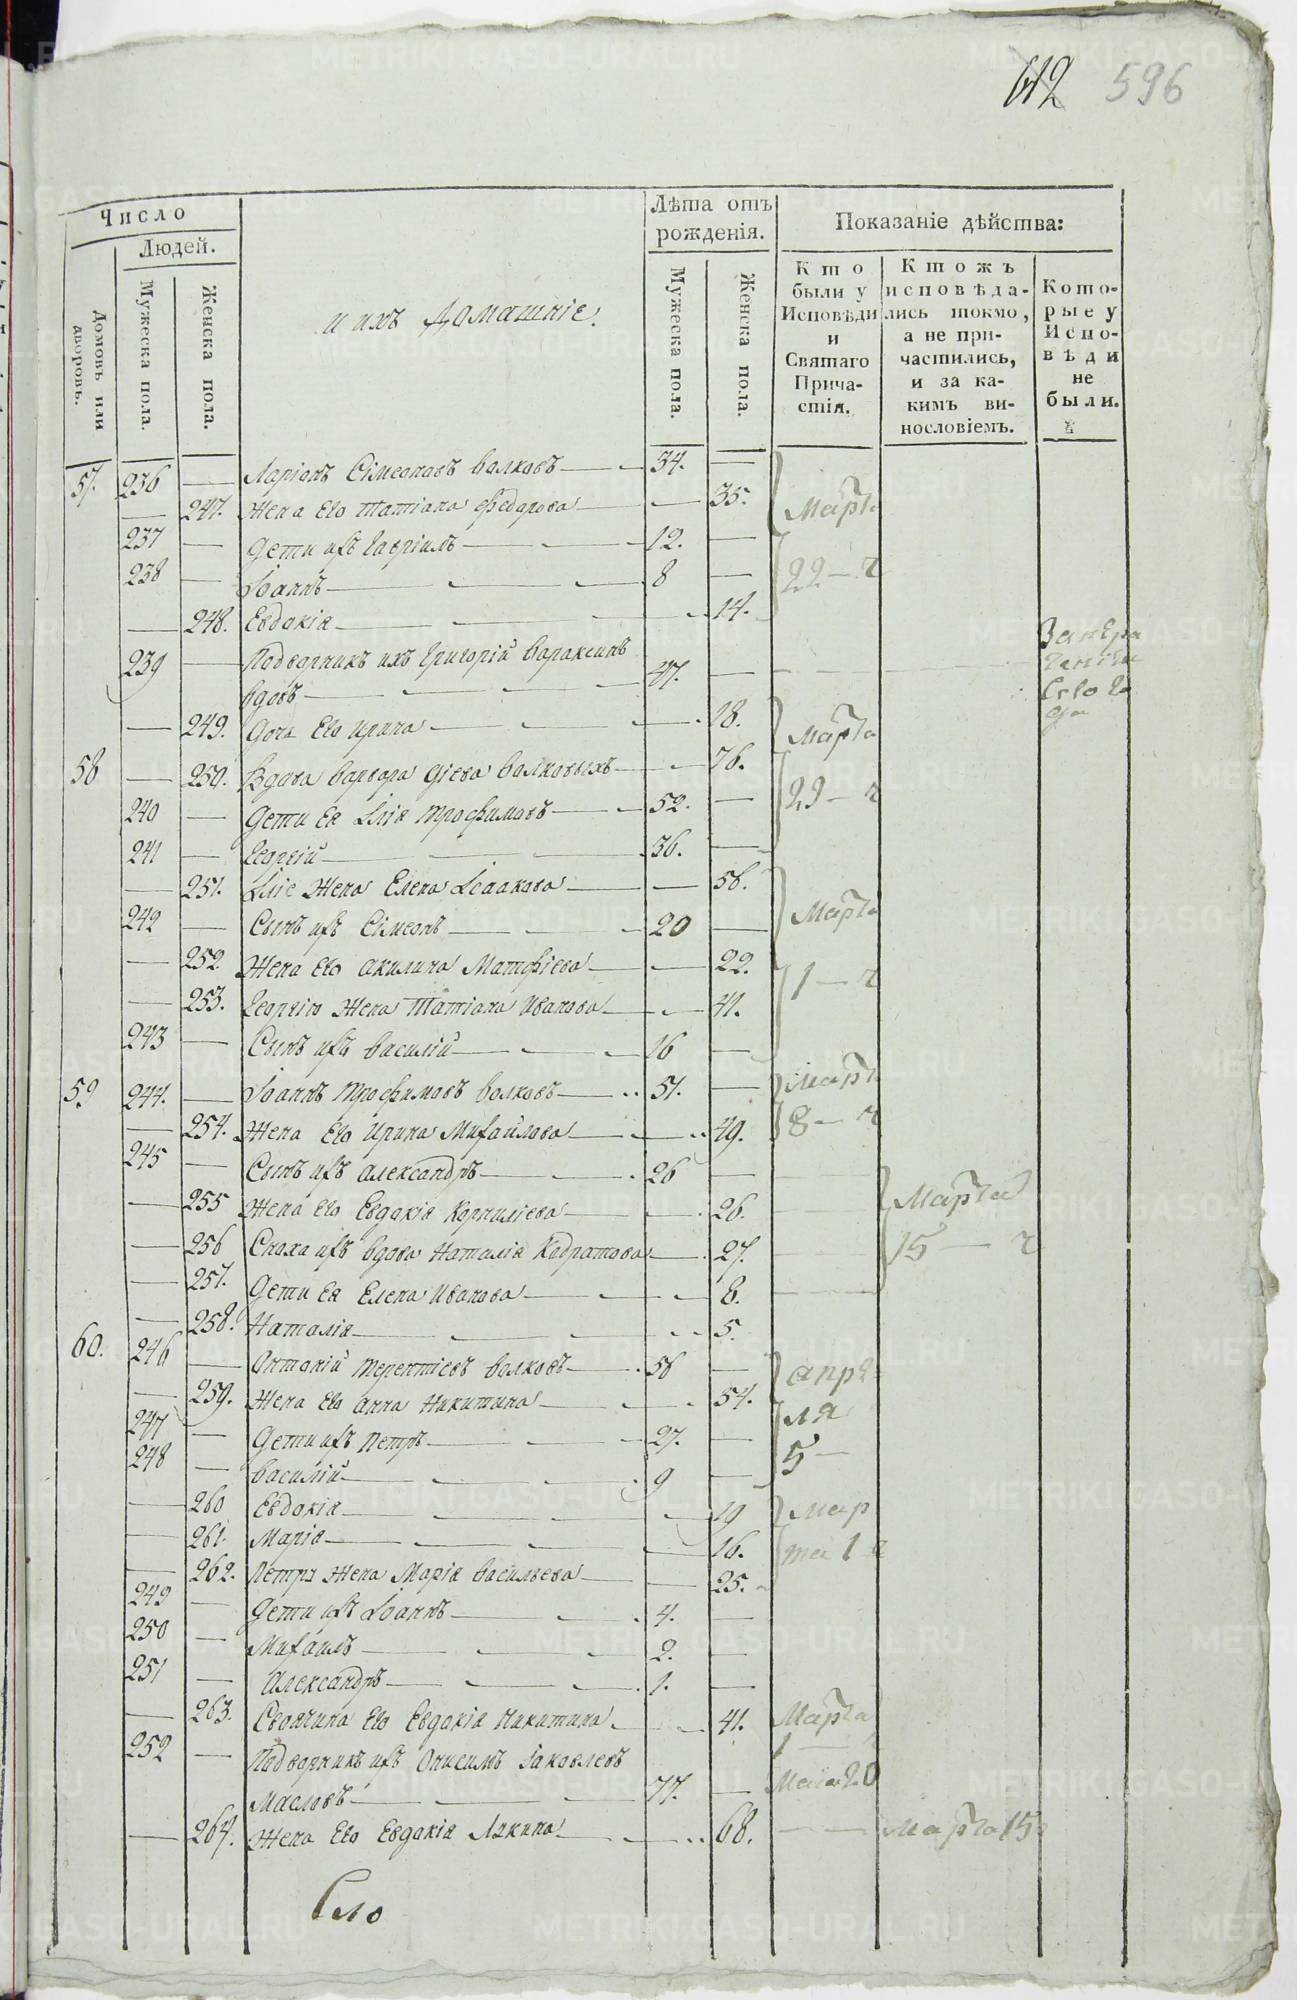 612 596
Число
Людей.
Домовъ или дворовъ.
Мужеска пола.
Женска пола.
и ихъ домашніе.
Лѣта отъ рожденія.
Мужеска пола.
Женска пола.
Показаніе дѣйства:
Кто были у Исповѣди и Святаго Причастія.
Ктожъ исповѣдались токмо, а не причастились, и за какимъ винословіемъ.
Которые у Исповѣди не были.
57. 236 — Ларіонъ Сімеоновъ Волковъ — 34. —
— 247. Жена Его Татіана Федорова — 35. Марта
237 — Дети ихъ Гавріилъ — 12. —
238 — Іоаннъ — 8 — 22 — ч
— 248. Евдокія — 14.
239 — Подворникъ ихъ Григорій Вараксинъ
вдовъ — 47. —
— 249. Дочь Его Ирина — 18. Марта
58 — 250. Вдова Варвара Волковыхъ — 76.
240 — Дети Ея Ілія Трофимовъ — 52. — 29 — ч
241 — Георгій — 36. —
— 251. Іліе Жена Елена Ісаакова — 56.
242 — Сынъ ихъ Сімеонъ — 20 — Марта
— 252. Жена Его Акилина Матфіева — 22.
— 253. Георгію Жена Татіана Иванова — 41. 1 — ч
243 — Сынъ ихъ Василій — 16 —
59 244. — Іоаннъ Трофимовъ Волковъ — 51. — Марта
— 254. Жена Его Ирина Михайлова — 49. 8 — ч
245 — Сынъ ихъ Александръ — 26 —
— 255 Жена Его Евдокія Корниліева — 26. Марта
— 256 Сноха ихъ вдова Наталія Кодратова — 27. 15 — ч
— 257. Дети Ея Елена Иванова — 8.
— 258. Наталія — 5.
60. 246 — Антоній Терентіевъ Волковъ — 56 — апре
— 259. Жена Его Анна Никитина — 54. ля
247 — Дети ихъ Петръ — 27. —
248 — Василій — 9 — 5 —
— 260 Евдокія — 19 Мар
— 261. Марія — 16. та 1 ч
— 262. Петру Жена Марія Васильева — 25.
249 — Дети ихъ Іоаннъ — 4. —
250 — Михаилъ — 2. —
251 — Александръ — 1. —
— 263. Своячина Его Евдокія Никитина — 41. Марта 1
252 — Подворникъ ихъ Онисимъ Іаковлевъ
Масловъ — 77. — 20
— 264. Жена Его Евдокія — 68. Марта 15
METRIKI.GASO-URAL.RU